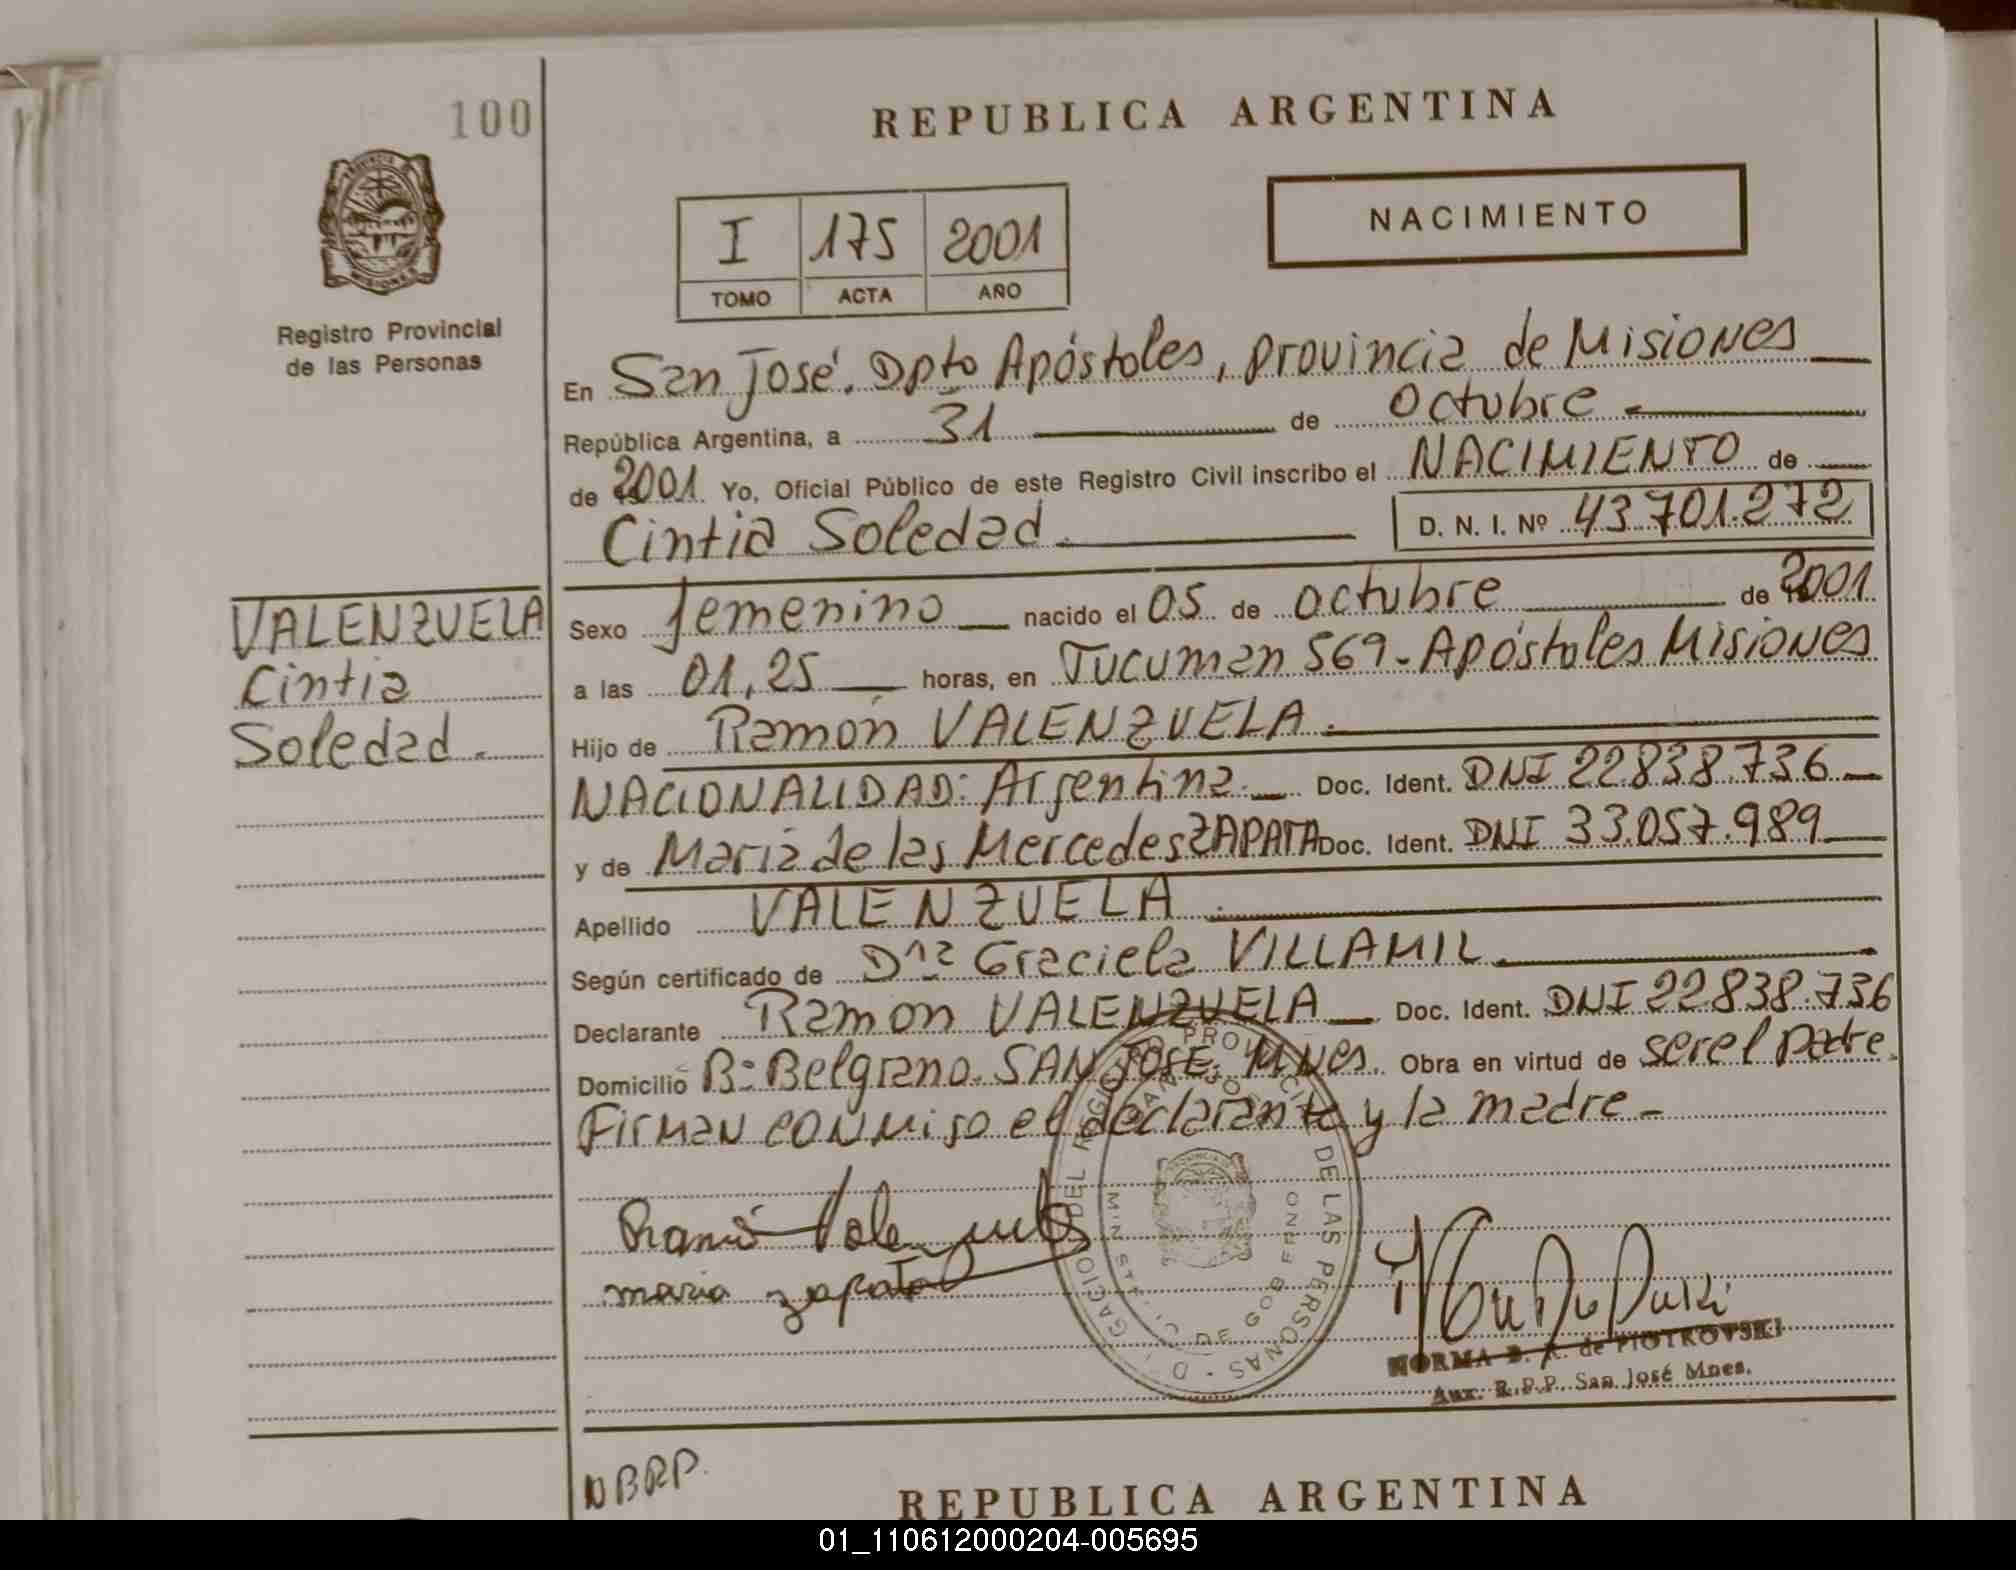 100
REPUBLICA ARGENTINA
NACIMIENTO
I 175 2001
TOMO ACTA AÑO
PROVINCIA DE
MISIONES
Registro Provincial
de las Personas
En San José. Dpto Apóstoles, provincia de Misiones
República Argentina, a 31 de octubre.
de 2001 Yo, Oficial Público de este Registro Civil inscribo el NACIMIENTO de
Cintia Soledad. D. N. I. Nº 43.701.272
VALENZUELA
Cintia
Soledad.
Sexo femenino nacido el 05 de octubre de 2001
a las 01,25 horas, en Tucuman 569-Apóstoles Misiones
Hijo de Ramón VALENZUELA.
NACIONALIDAD: Argentina. Doc. Ident. DNI 22.838.736
y de Maria de las Mercedes ZAPATA Doc. Ident. DNI 33.057.989
Apellido VALENZUELA.
Según certificado de Dña Graciela VILLAMIL.
Declarante Ramon VALENZUELA Doc. Ident. DNI 22.838.736
Domicilio Bº Belgrano. SAN JOSE. Mnes. Obra en virtud de ser el padre.
Firman conmigo el declarante y la madre.
Ramon Valenzuela
maria zapata
PROVINCIAL DE LAS PERSONAS
DE GOBIERNO
NORMA B. R. de PIOTROVSKI
Aux. R.P.P. San José Mnes.
NBRP.
REPUBLICA ARGENTINA
01_110612000204-005695